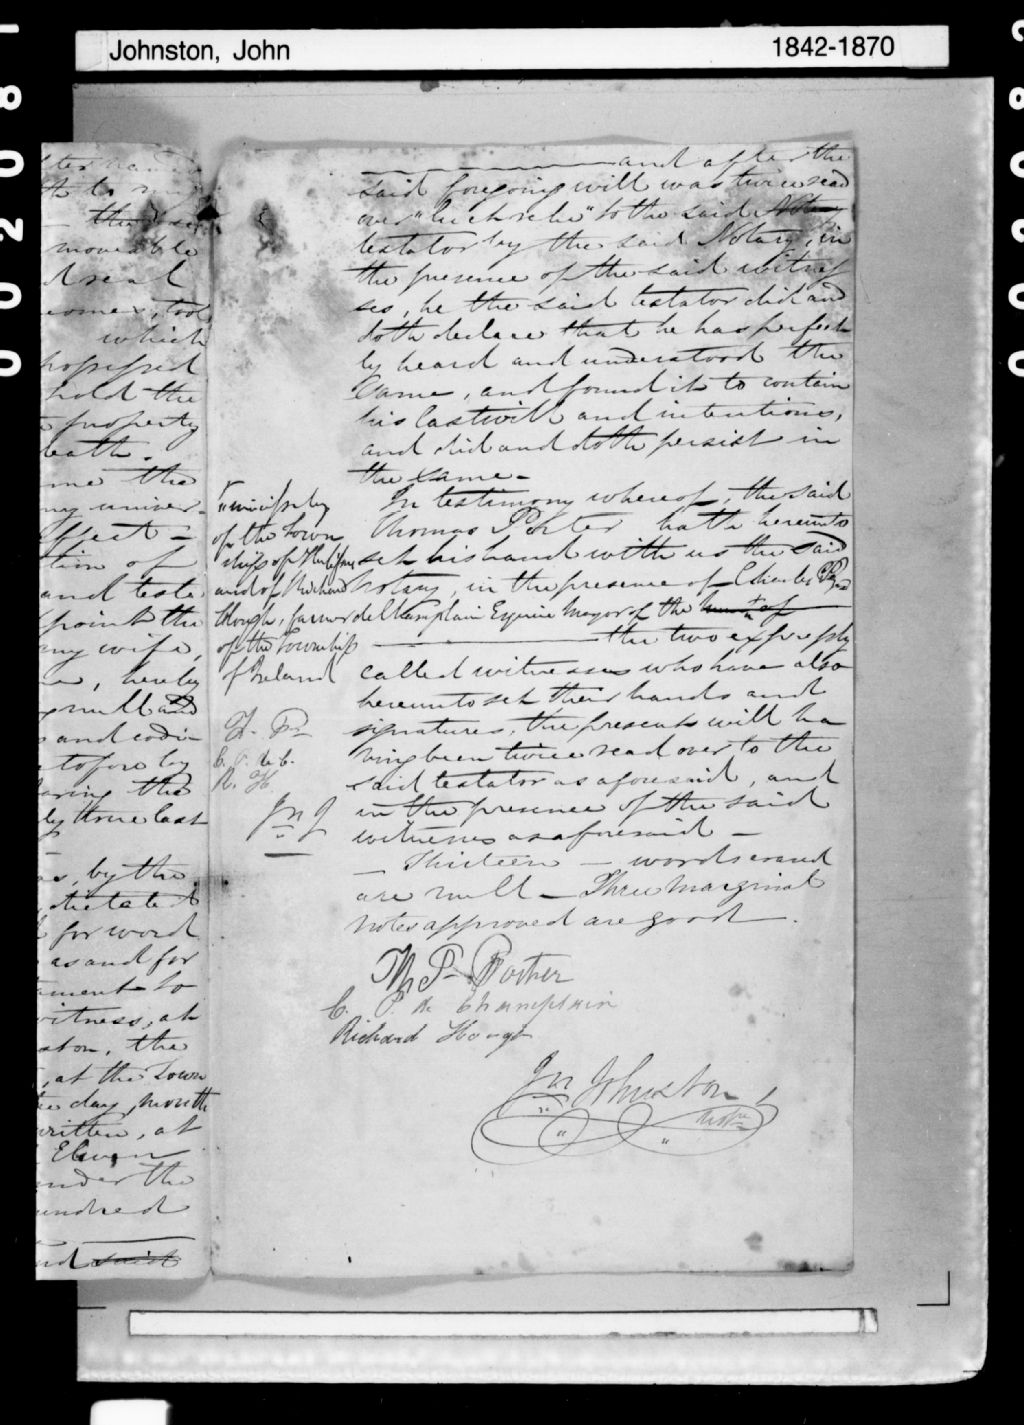 Johnston, John 1842-1870
002081
002082
and after the
said foregoing will was twice read
over to the said Notary
testator by the said Notary, in
the presence of the said witnes
ses, he the said testator did and
doth declare that he has perfect
ly heard and understood the
same, and found it to contain
his last will and intentions,
and did and doth persist in
the same -
In testimony whereof, the said
Thomas Porter hath hereunto
set his hand with us the said
Notary, in the presence of Charles
de Champlain Esquire Mayor of the
the two expressly
called witnesses who have also
hereunto set their hands and
signatures, the presents will ha
ving been twice read over to the
said testator as aforesaid, and
in the presence of the said
witnesses as aforesaid -
- Thirteen - words erased
are null - Three marginal
notes approved are good -.
of the Town
ships of
and of Richard
Hough, farmer
of the Township
of Ireland
T. Pr
C. P. de C.
R. H.
Jn J
Th Pr Porter
C. P. de Champlain
Richard Hough
Jn Johnston,
to my
the
moveable
real
which
possessed
hold the
property
death.
me the
my univer-
effect -
tion of
and testa
point the
my wife,
hereby
null and
and codi-
tofore by
the
true last
by the
dictated
for word
as and for
ament to
witness, at
the
, at the Town
the day, month
written, at
Eleven
under the
hundred
and said